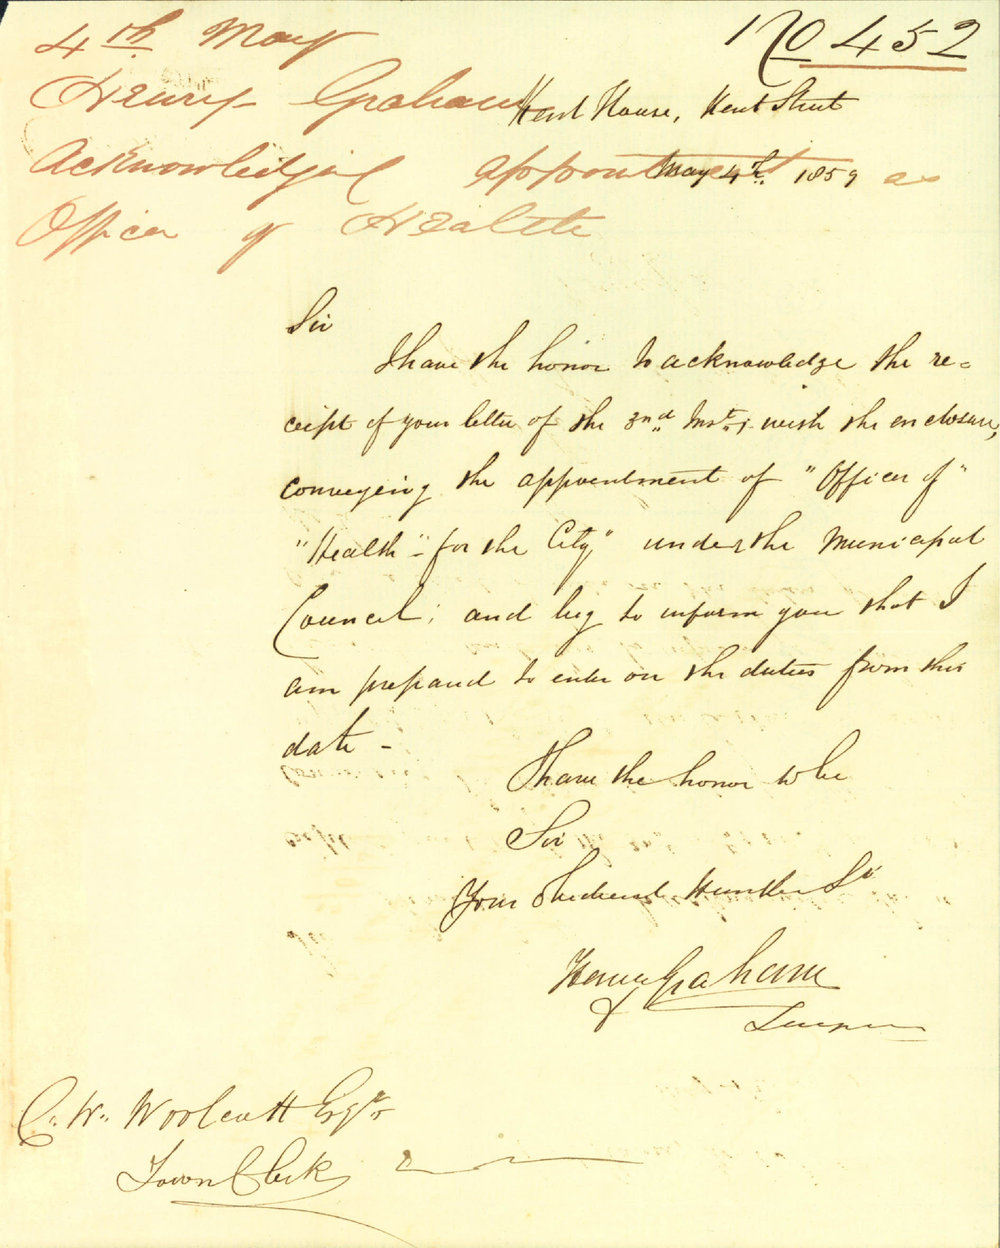 No 452
4th May
Henry Graham
Acknowledging appointment as
Officer of Health
Kent House, Kent Street
May 4th. 1859
Sir
I have the honor to acknowledge the re=
ceipt of your letter of the 3nd Inst; with the enclosure,
conveying the appointment of "Officer of"
"Health" - for the City" under the Municipal
Council; and beg to inform you that I
am prepared to enter on the duties from this
date -
I have the honor to be
Sir
Your Obedient Humble St
Henry Graham
C. W. Woolcott Esqre
Town Clerk